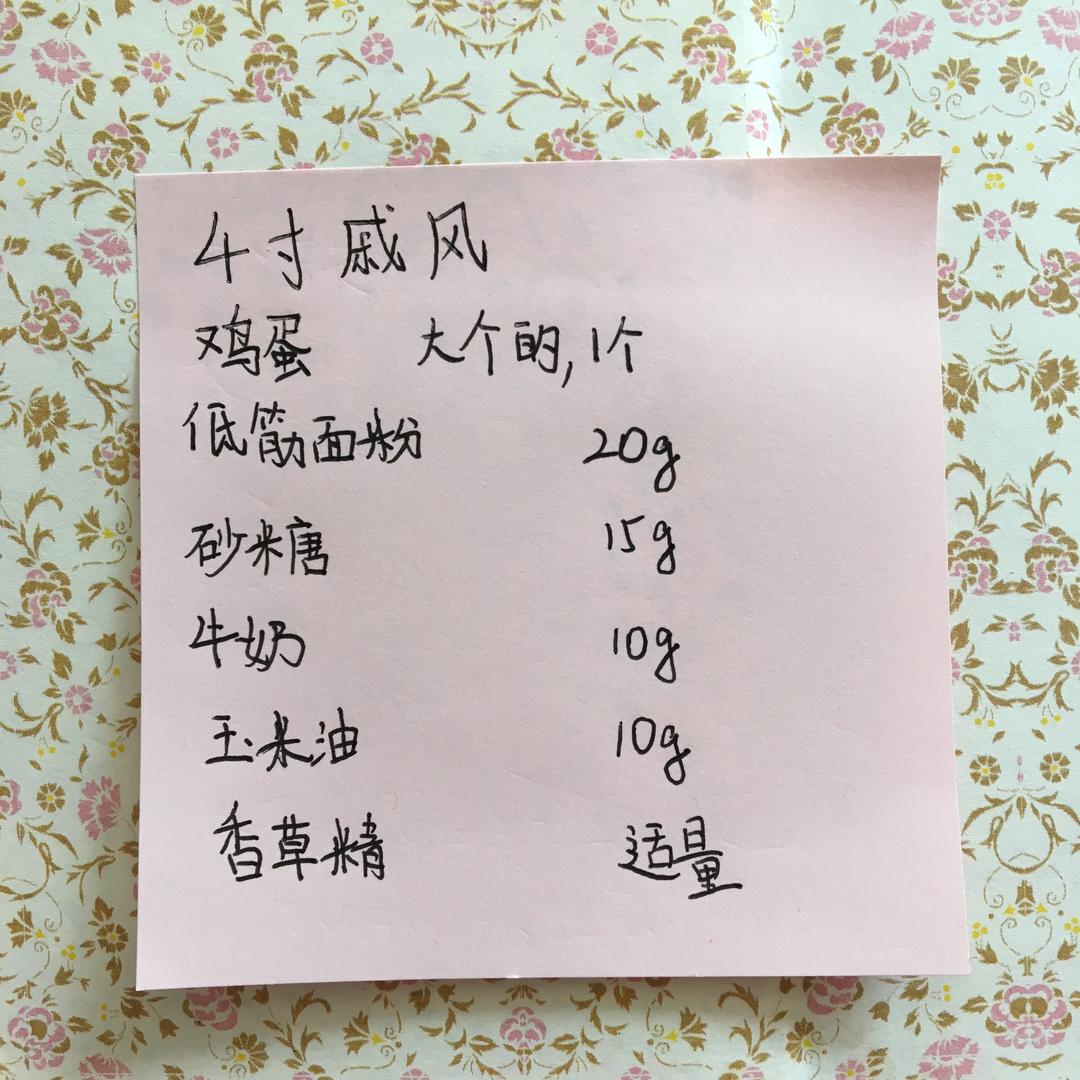 4寸戚风
鸡蛋 大个的,1个
低筋面粉 20g
砂糖 15g
牛奶 10g
玉米油 10g
香草精 适量